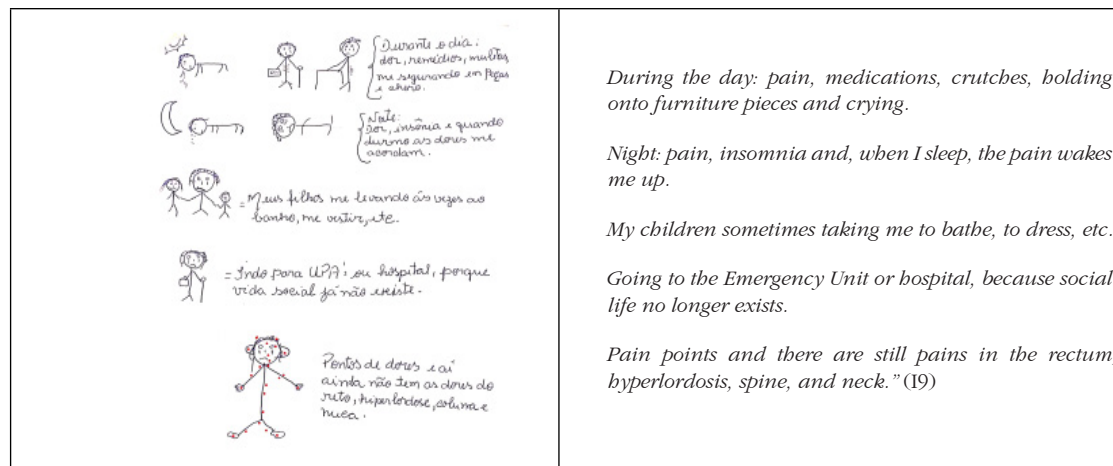 Durante o dia:
dor, remédios, muletas,
me segurando em peças
e choro.
Noite:
Dor, insônia e quando
durmo as dores me
acordam.
= Meus filhos me levando às vezes ao
banho, me vestir, etc.
= Indo para UPA's ou hospital, porque
vida social já não existe.
Pontos de dores e aí
ainda não tem as dores do
reto, hiperlordose, coluna e
nuca.
During the day: pain, medications, crutches, holding
onto furniture pieces and crying.
Night: pain, insomnia and, when I sleep, the pain wakes
me up.
My children sometimes taking me to bathe, to dress, etc.
Going to the Emergency Unit or hospital, because social
life no longer exists.
Pain points and there are still pains in the rectum,
hyperlordosis, spine, and neck." (I9)